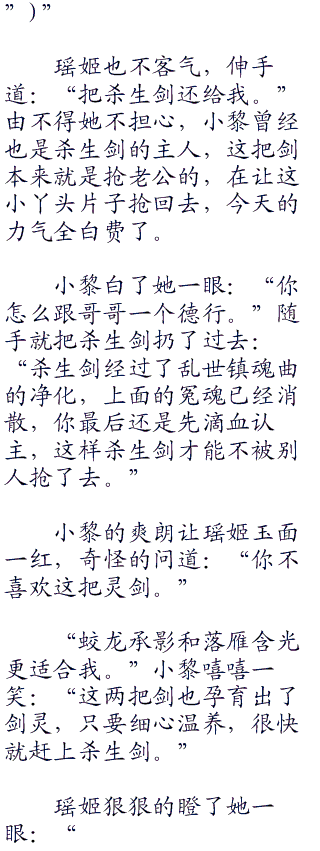 ”)”
瑶姬也不客气，伸手
道：“把杀生剑还给我。”
由不得她不担心，小黎曾经
也是杀生剑的主人，这把剑
本来就是抢老公的，在让这
小丫头片子抢回去，今天的
力气全白费了。
小黎白了她一眼：“你
怎么跟哥哥一个德行。”随
手就把杀生剑扔了过去：
“杀生剑经过了乱世镇魂曲
的净化，上面的冤魂已经消
散，你最后还是先滴血认
主，这样杀生剑才能不被别
人抢了去。”
小黎的爽朗让瑶姬玉面
一红，奇怪的问道：“你不
喜欢这把灵剑。”
“蛟龙承影和落雁含光
更适合我。”小黎嘻嘻一
笑：“这两把剑也孕育出了
剑灵，只要细心温养，很快
就赶上杀生剑。”
瑶姬狠狠的瞪了她一
眼：“